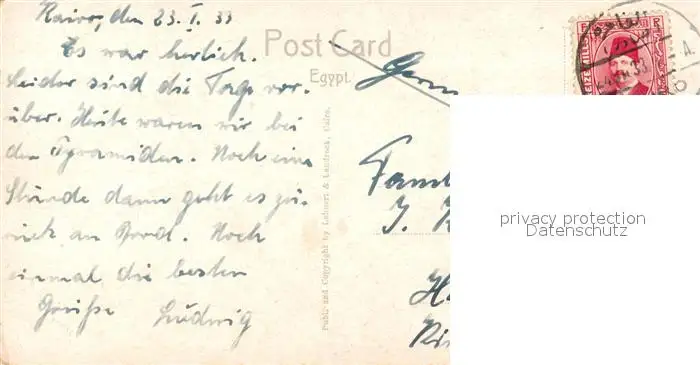 Kairo, den 23.I.33
Es war herlich.
Leider sind die Tage vor-
über. Heute waren wir bei
den Pyramiden. Noch eine
Stunde dann geht es zu-
rück an Bord. Noch
einmal die besten
Grüße Ludwig
Post Card
Egypt.
Publ. and Copyright by Lehnert & Landrock, Cairo.
Germ
Famil
J.
privacy protection
Datenschutz